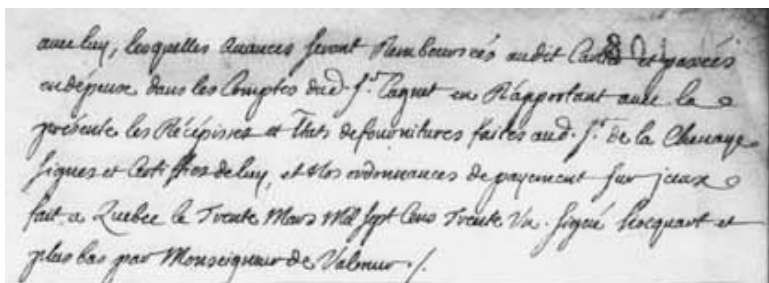 avec luy, lesquelles avances seront Remboursées audit et passées
en dépense dans les Comptes dud. Sr. Taquet en Raportant avec la
présente les Récépissés et Etats de fournitures faites aud. Sr. de la Chenaye
signés et Certiffiés de luy, et Nos ordonnances de payement sur iceux
fait a Quebec le Trente Mars Mil Sept Cens Trente Un. signé hocquart et
plus bas par Monseigneur de Valmur ./.